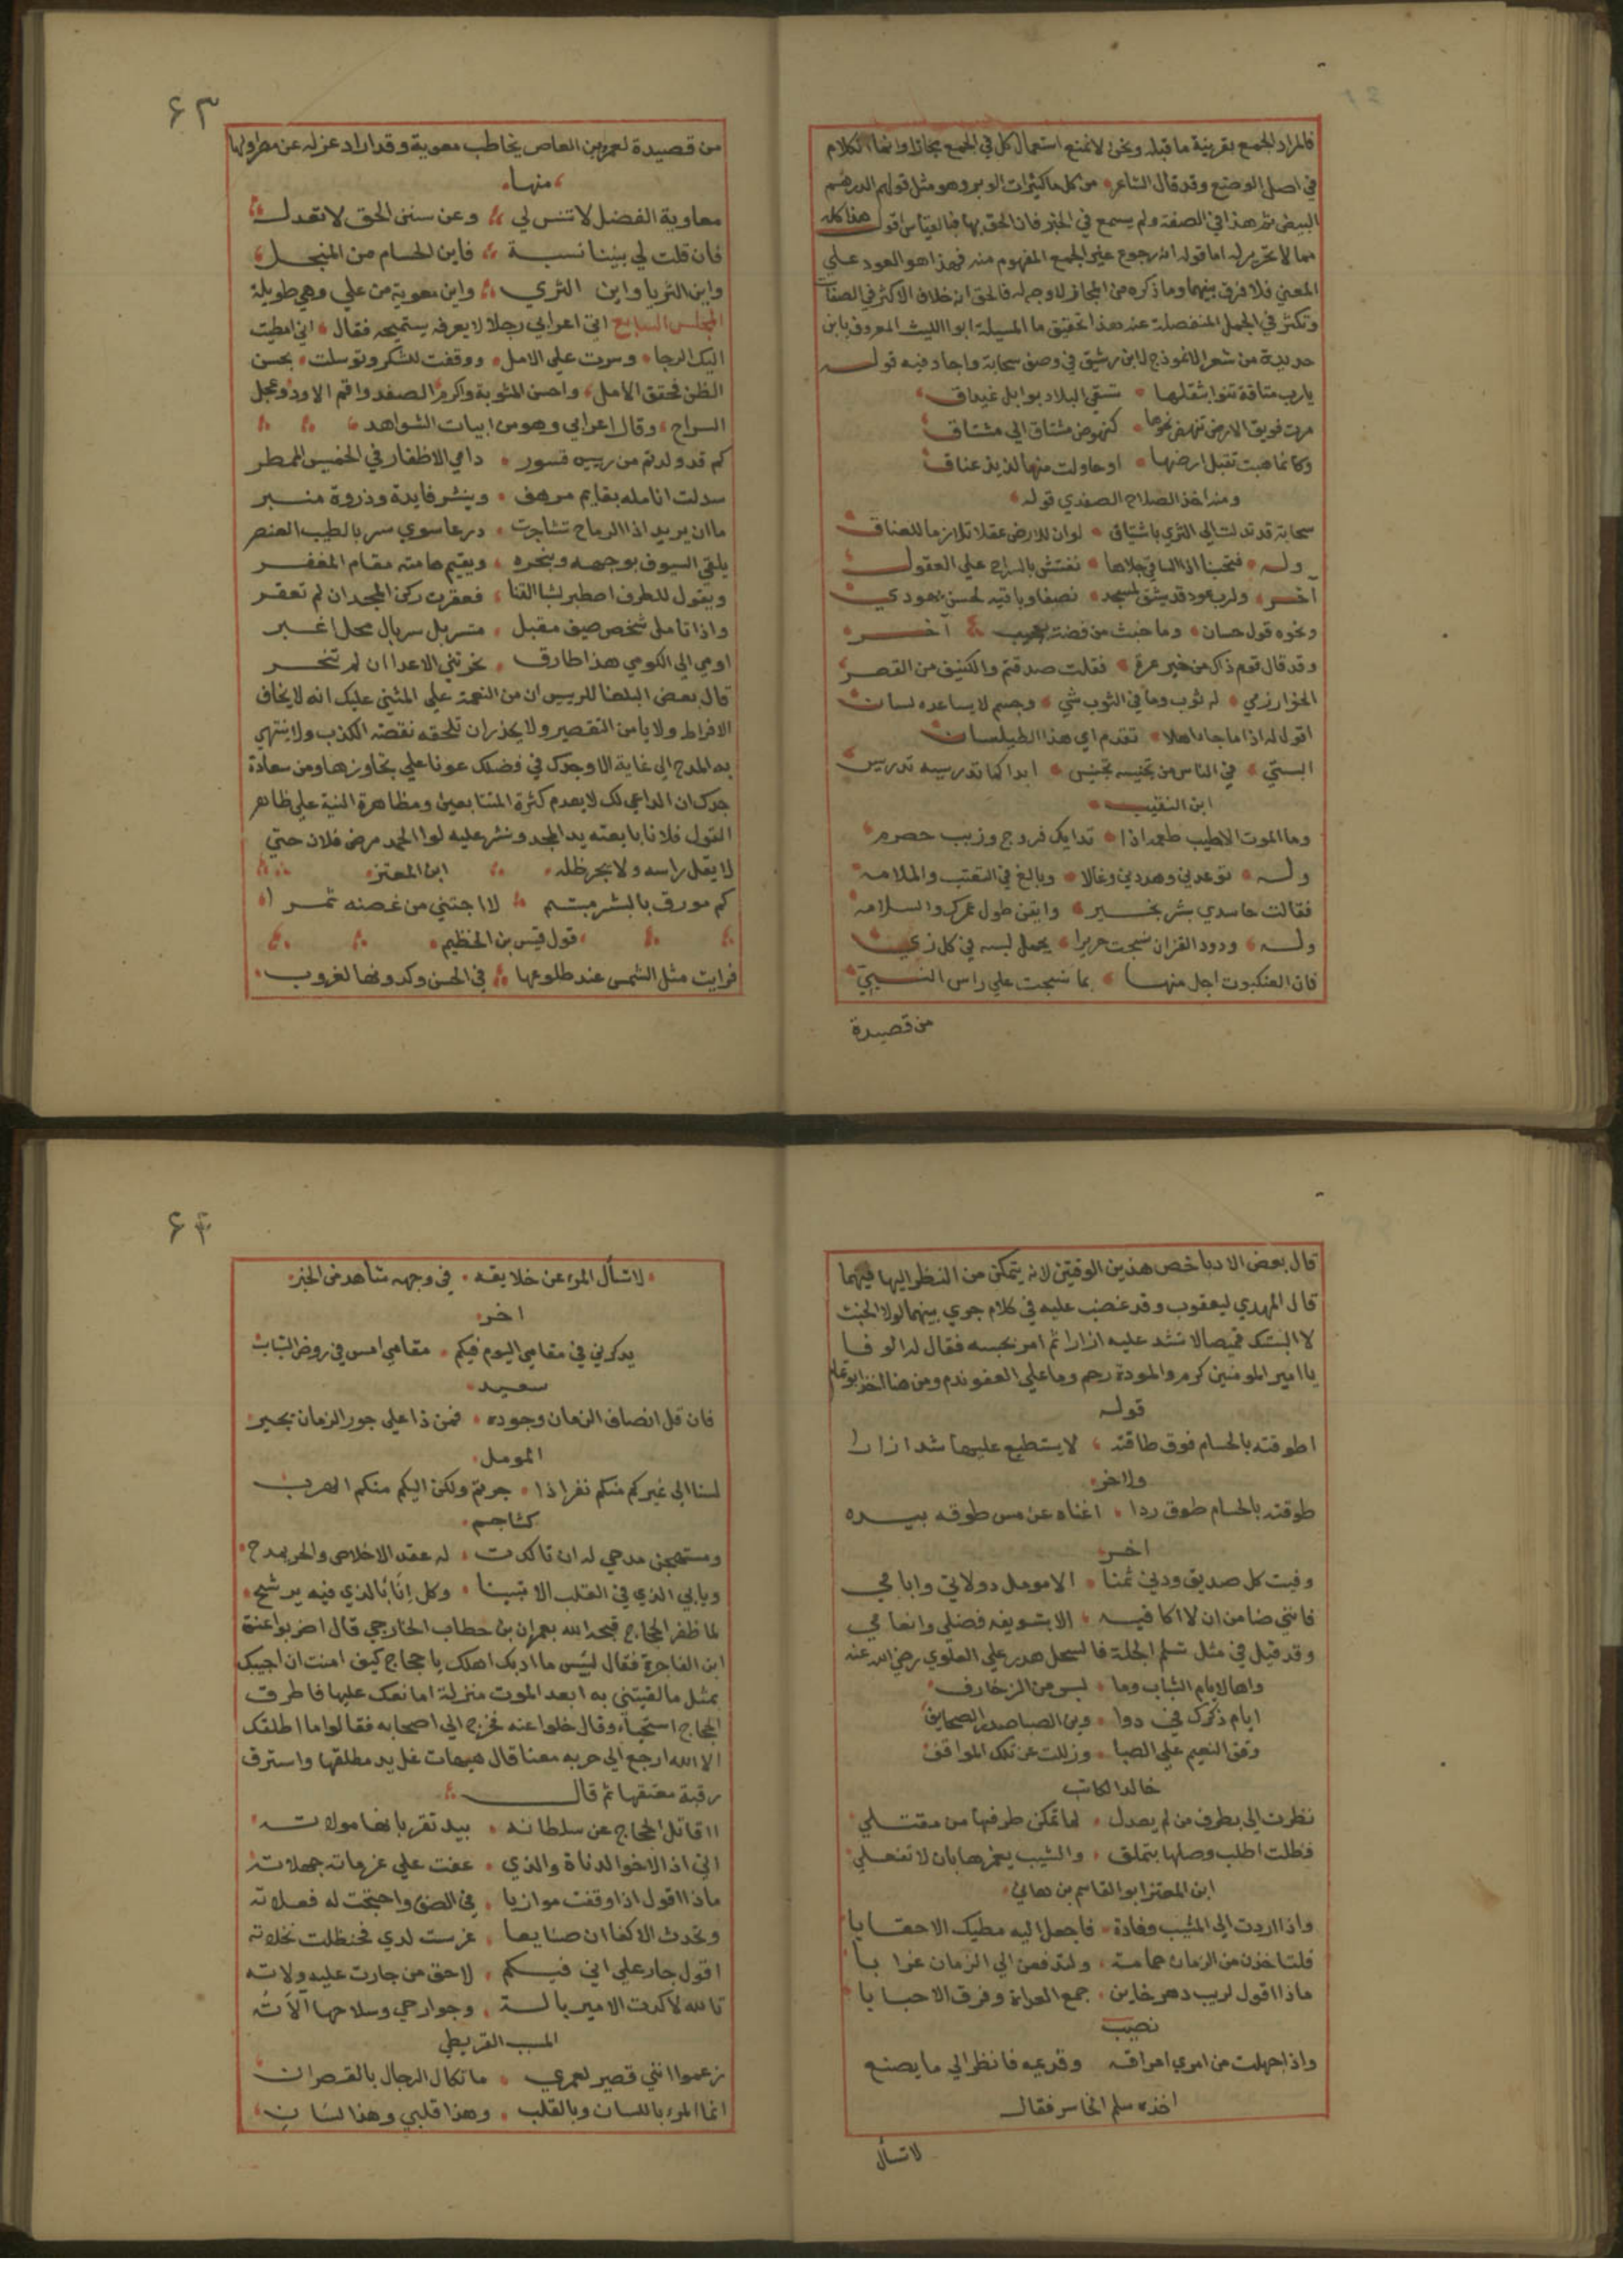 فالمراد الجمع بقرينة ما قبله ونحن لا نمنع استعمال كل في الجمع مجازا وانما الكلام
في اصل الوضع وقد قال الشاعر من كل ما كثيرات الوبر وهو مثل قولهم الدرهم
البيض ثم هذا في الصفة ولم يسمع في الخبر فان الحق بها فبالقياس اقول هذا كله
مما لا تحرير له اما قوله انه رجوع الجمع المفهوم منه فهذا هو العود علي
المعني فلا فرق بينهما وما ذكره من المجاز لا وجه له فالحق ان خلاف الاكثر في الصفات
وتكثر في الجمل المنفصلة عند هذا تحقيق ما المسيلة ابو الليث المعروف بابن
حديدة من شعر الانموذج لابن رشيق في وصف سحابة واجاد فيه قوله
يا رب متاقة تنوا بثقلها تسقي البلاد بوابل غيداق
مرت فويق الارض تنهض نحوها كنهوض مشتاق الي مشتاق
وكانما هبت تقبل ارضها او حاولت منها لذيذ عناق
ومنه اخذ الصلاح الصفدي قوله
سحابة قد تدلت الي الثري باشتياق لو ان للارض عقلا تلازما للعناق
وله فتحبنا اذا الساقي جلاها نفتش بالسراج علي العقول
آخر ولرب عود قد يشق لمسجد نصفا وباقيه لحسن يهودي
ونحوه قول حسان وما خبث من فضة بعجيب آخر
وقد قال قوم ذاك من خير عرق فقلت صدقتم والكنيف من القصر
الخوارزمي له ثوب وما في الثوب شي وجسم لا يساعده لسان
اقول له اذا ما جاء اهلا تقدم اي هذا الطيلسان
البستي في الناس من تجنيسه تجنيس ابدا كما تدريسه تدريس
ابن النقيب
وما الموت الا طيب طعمه اذا تدايك فروج وزبب حصرم
وله توعدني وهددني وغالا وبالغ في التعتب والملامه
فقالت حاسدي بشر بخير وايقن طول عمرك والسلامه
وله ودود القز ان نسجت حريرا يجمل لبسه في كل زي
فان العنكبوت اجل منها بما نسجت علي راس النبيّ
من قصيدة
٦٣
من قصيدة لعمرو بن العاص يخاطب معوية وقد اراد عزله عن مصر اولها
منها
معاوية الفضل لا تنس لي وعن سنن الحق لا تعدل
فان قلت لي بيننا نسبة فاين الحسام من المنجل
واين الثريا واين الثري واين معوية من علي وهي طويلة
المجلس السابع اتي اعرابي رجلا لا يعرفه يستميحه فقال اني امطيت
اليك الرجا وسرت علي الامل ووقفت للشكر وتوسلت بحسن
الظن فحقق الامل واحسن المثوبة واكرم الصفد واقم الاود وعجل
السراح وقال اعرابي وهو من ابيات الشواهد
كم قد ولدتم من رييس قسور دامي الاظفار في الخميس الممطر
سدلت انامله بقايم مرهف وبنشر فايدة وذروة منبر
ما ان يريد اذا الرماح تشاجرت درعا سوي سربال طيب العنصر
يلقي السيوف بوجهه وبنحره ويقيم هامته مقام المغفر
ويقول للطرف اصطبر لشبا القنا فعقرت ركن المجد ان لم تعقر
واذا تامل شخص ضيف مقبل متسربل سربال محل اغبر
اومي الي الكومي هذا طارق نحرتني الاعدا ان لم تنحر
قال بعض البلغا للرييس ان من النعمة علي المثني عليك انه لا يخاف
الافراط ولا يامن التقصير ولا يحذر ان تلحقه نقصة الكذب ولا ينتهي
به المدح الي غاية الا وجدك في فضلك عونا علي تجاوزها ومن سعادة
جدك ان الداعي لك لا يعدم كثرة المتتابعين ومظاهرة النية علي ظاهر
القول فلان بايعته يد المجد ونشر عليه لوا الحمد مرض فلان حتي
لا يقل راسه ولا يجر ظله ابن المعتز
كم مورق بالبشر مبتسم لا اجتني من غصنه ثمرا
قول قيس بن الخطيم
فرايت مثل الشمس عند طلوعها في الحسن وكدونها لغروب
قال بعض الادبا خص هذين الوقتين لانه يتمكن من النظر اليها فيهما
قال المهدي ليعقوب وقد غضب عليه في كلام جري بينهما لولا الحنث
لالبستك قميصا لا تشد عليه ازارا ثم امر بحبسه فقال له الوفا
يا امير المومنين كرم والمودة رحم وما علي العفو ندم ومن هنا اخذ ابو تمام
قوله
اطوقته بالحسام فوق طاقته لا يستطيع عليها شد ازارا
ولاخر
طوقته بالحسام طوق ردا اغناه عن مس طوقه بيده
اخر
وفيت كل صديق ودني ثمنا الا مومل دولاتي وايامي
فانني ضامن ان لا اكافيه الا بتسويغه فضلي وانعامي
وقد قيل في مثل تسلم الجلة علي العلوي رضي الله عنه
واها لايام الشباب وما لبسن من الزخارف
ايام ذكرك في دوا وين الصبا صدر الصحايف
وقف النعيم علي الصبا وزللت عن تلك المواقف
خالد الكاتب
نظرت الي بطرف من لم يعدل لما تمكن طرفها من مقتلي
فظلت اطلب وصلها بتملق والشيب يغمزها بان لا تفعلي
ابن المعتز ابو القاسم بن هاني
واذا اردت الي المشيب وفادة فاجعل اليه مطيك الاحقابا
فلتاخذن من الزمان حمامة ولتدفعن الي الزمان غرابا
ماذا اقول لريب دهر خاين جمع العداة وفرق الاحبابا
نصيب
واذا جهلت من امري اعراقه وقديمه فانظر الي ما يصنع
اخذه سلم الخاسر فقال
لا تسأل
٦٤
لا تسأل المرء عن خلايقه في وجهه شاهد من الخبر
اخر
يذكرني في مقامي اليوم فيكم مقامي امس في روض الشباب
سعيد
فان قل انصاف الزمان وجوده فمن ذا علي جور الزمان يجير
المومل
لسنا الي غيركم منكم نفر اذا جرتم ولكن اليكم منكم الهرب
كشاجم
ومستهجن مدحي له ان تاكدت له عقد الاخلاص والحر يمدح
ويابي الذي في القلب الا تبينا وكل انا بالذي فيه يرشح
لما ظفر الحجاج قبحه الله بعمران بن حطاب الخارجي قال اضربوا عنق
ابن الفاجرة فقال لبيس ما ادبك اهلك يا حجاج كيف امنت ان اجيبك
بمثل ما لقيتني به ابعد الموت منزلة اصانعك عليها فاطرق
الحجاج استحياء وقال خلوا عنه فخرج الي اصحابه فقالوا ما اطلقك
الا الله ارجع الي حربه معنا قال هيهات غل يد مطلقها واسترق
رقبة معتقها ثم قال
ااقاتل الحجاج عن سلطانه بيد تقر بانها مولاته
اني اذا لاخو الدناة والذي عفت علي عزماته جهلاته
ماذا اقول اذا وقفت موازيا في الصف واحتجت له فعلاته
وتحدث الاكفا ان صنايعا غرست لدي فحنظلت نخلاته
اقول جار علي اني فيكم لاحق من جارت عليه ولاته
تالله لا كدت الامير بالة وجوارحي وسلاحها آلاته
المسيب القريظي
زعموا انني قصير لعمري ما تكال الرجال بالقصران
انما المرء باللسان وبالقلب وهذا قلبي وهذا لسان